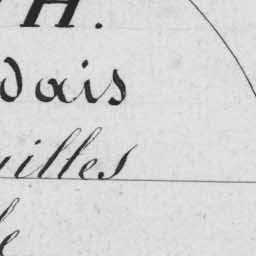 H.
dais
illes
le